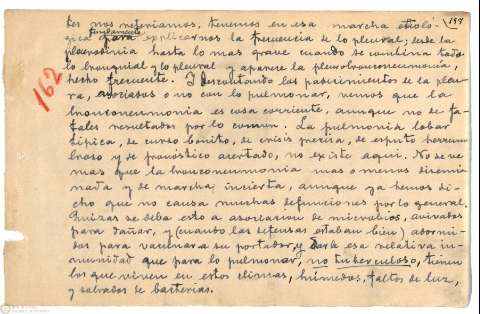 197
tes nos referiamos, tenemos en esa marcha etioló-
fundamento
gica para explicarnos la frecuencia de lo pleural, desde la
pleurodinia hasta lo mas grave cuando se combina todo
lo bronquial y lo pleural y aparece la pleurobronconeumonia,
162
hecho frecuente. Y descontando los padecimientos de la pleu-
ra, asociados o no con lo pulmonar, vemos que la
bronconeumonia es cosa corriente, aunque no de fa-
tales resultados por lo comun. La pulmonia lobar
tipica, de curso bonito, de crisis precisa, de esputo herrum-
broso y de pronóstico acertado, no existe aqui. No se ve
mas que la bronconeumonia mas o menos disemi-
nada y de marcha incierta, aunque ya hemos di-
cho que no causa muchas defunciones por lo general.
Quizas se deba esto a asociacion de microbios, avivados
para dañar, y (cuando las defensas estaban bien) adormi-
dos para vacunar a su portador, y darle esa relativa in-
munidad que para lo pulmonar, no tuberculoso, tienen
los que viven en estos climas, húmedos, faltos de luz,
y salvados de bacterias.